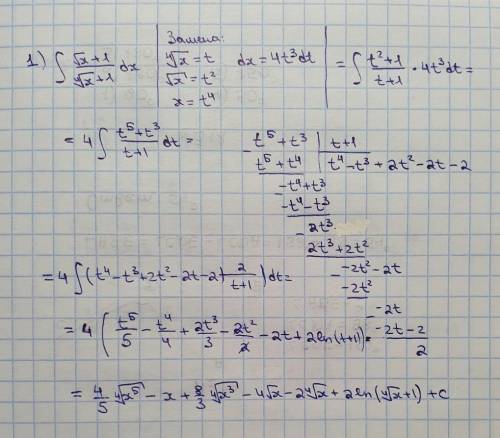 1) ∫ (√x+1)/(⁴√x+1) dx | Замена: ⁴√x = t √x = t² x = t⁴ dx = 4t³dt | = ∫ (t²+1)/(t+1) · 4t³dt =
= 4 ∫ (t⁵+t³)/(t+1) dt =
t⁵+t³ | t+1
t⁵+t⁴ | t⁴-t³+2t²-2t-2
-t⁴+t³
-t⁴-t³
2t³
2t³+2t²
-2t²-2t
-2t²
-2t
-2t-2
2
= 4 ∫ (t⁴-t³+2t²-2t-2 2/(t+1)) dt =
= 4 ( t⁵/5 - t⁴/4 + 2t³/3 - 2t²/2 - 2t + 2ln(t+1) =
= 4/5 ⁴√x⁵ - x + 8/3 ⁴√x³ - 4√x - 2⁴√x + 2ln(⁴√x+1) + c